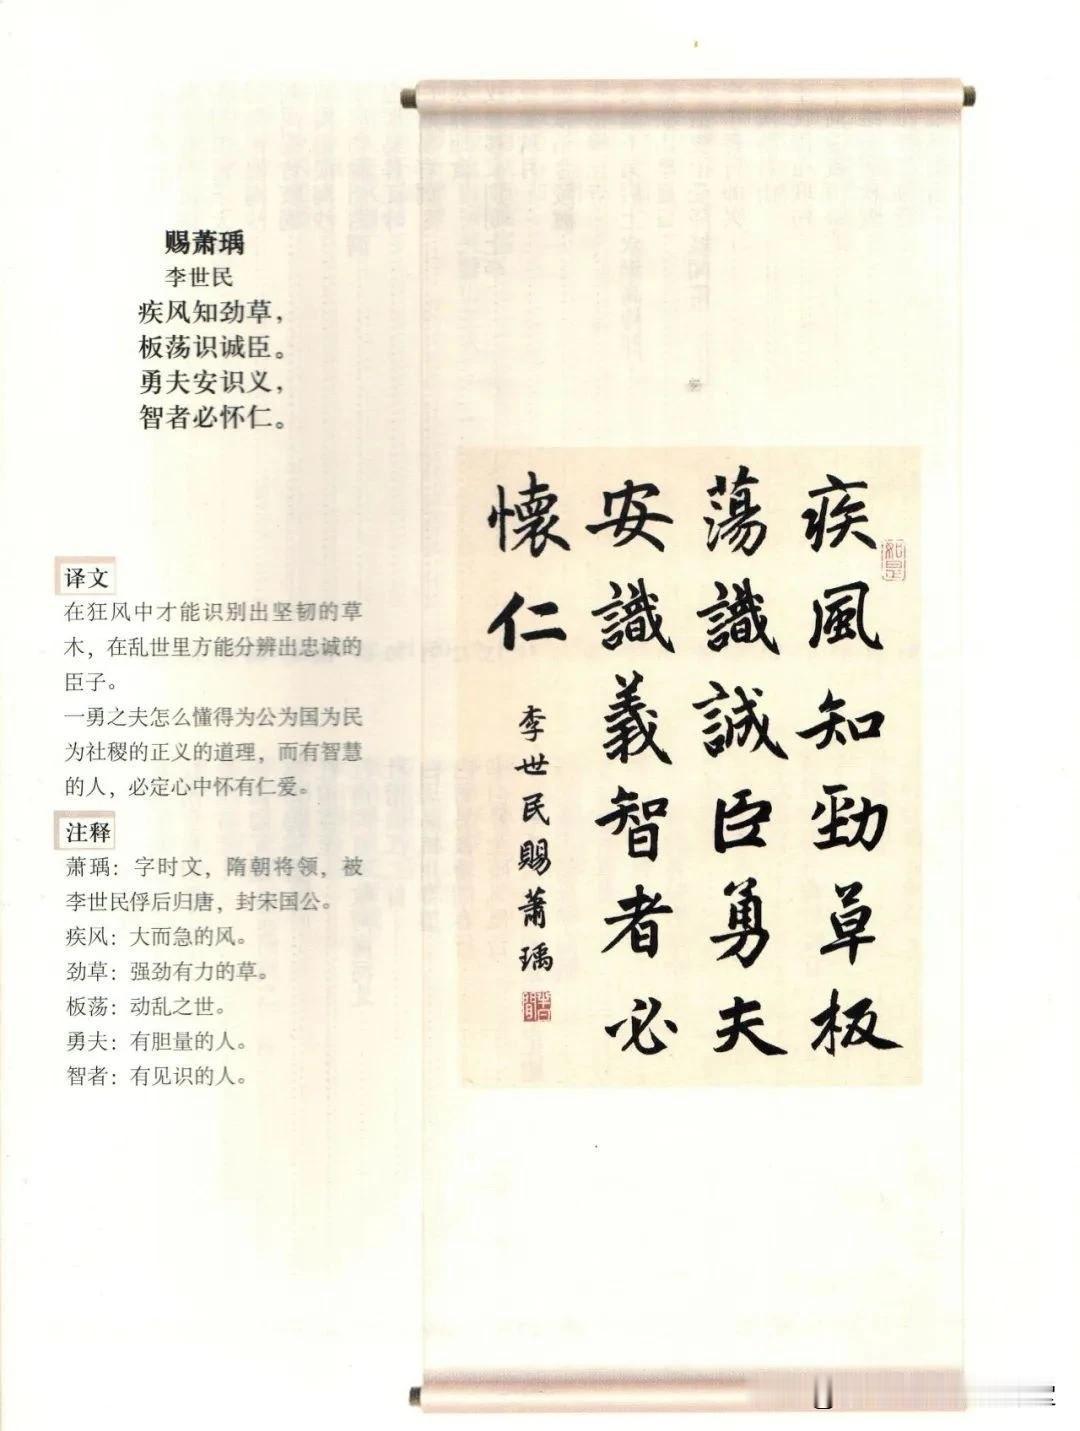 赐萧瑀
李世民
疾风知劲草，
板荡识诚臣。
勇夫安识义，
智者必怀仁。
译文
在狂风中才能识别出坚韧的草
木，在乱世里方能分辨出忠诚的
臣子。
一勇之夫怎么懂得为公为国为民
为社稷的正义的道理，而有智慧
的人，必定心中怀有仁爱。
注释
萧瑀：字时文，隋朝将领，被
李世民俘后归唐，封宋国公。
疾风：大而急的风。
劲草：强劲有力的草。
板荡：动乱之世。
勇夫：有胆量的人。
智者：有见识的人。
疾風知勁草板
蕩識誠臣勇夫
安識義智者必
懷仁
李世民賜蕭瑀
如是